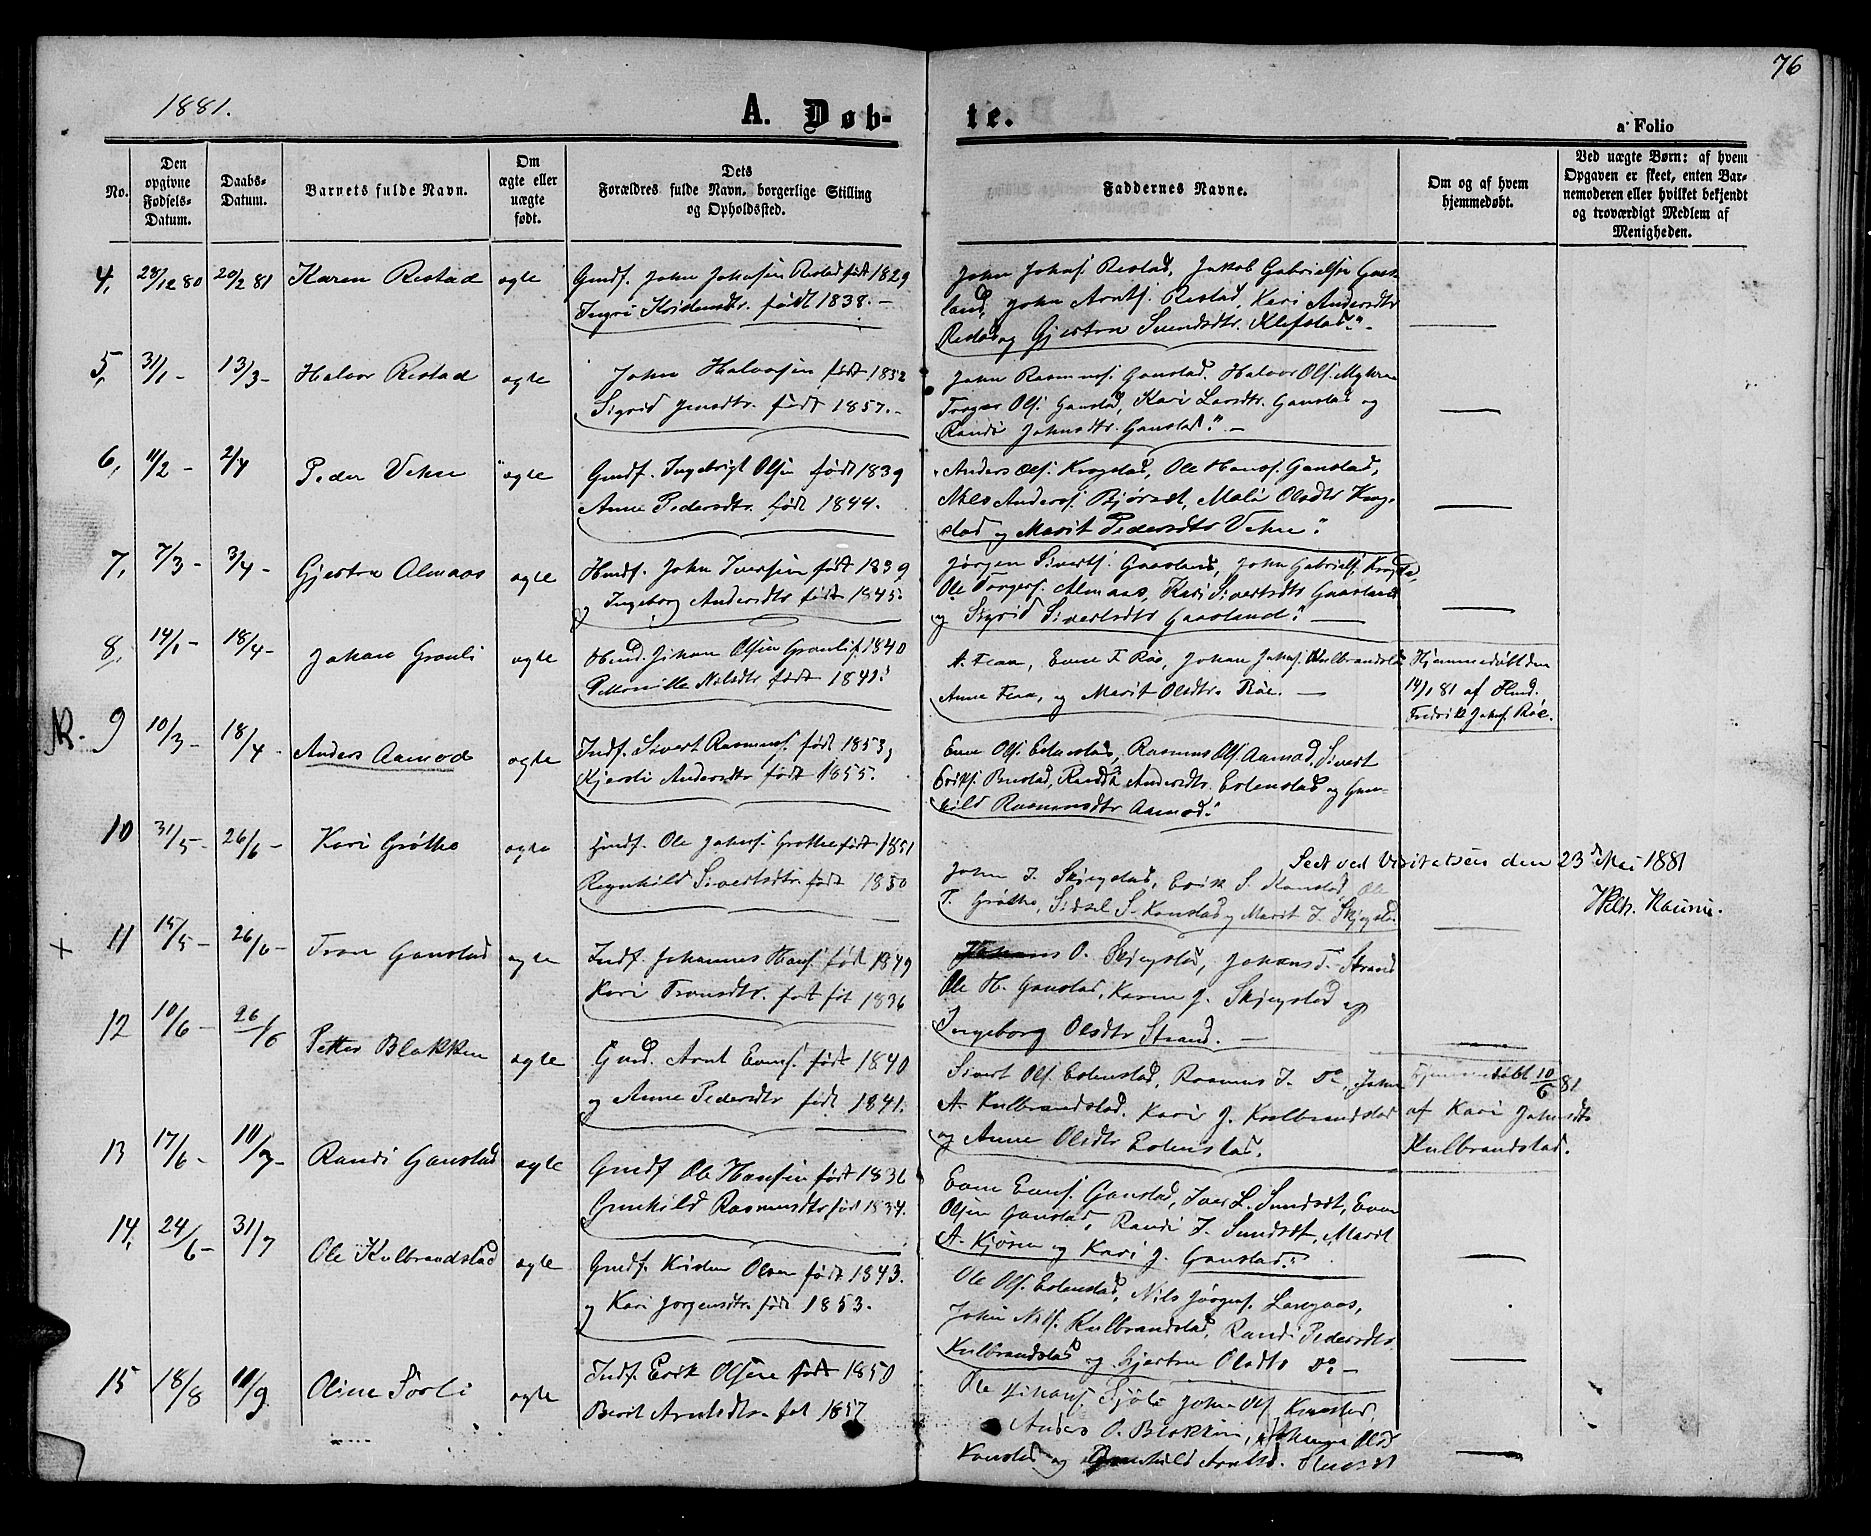 76
1881.
A. Døb-
te.
a' Folio
No.
Den opgivne Fødsels-Datum.
Daabs-Datum.
Barnets fulde Navn.
Om ægte eller uægte født.
Dets Forældres fulde Navn, borgerlige Stilling og Opholdssted.
Faddernes Navne.
Om og af hvem hjemmedøbt.
Ved uægte Børn: af hvem Opgaven er skeet, enten Barnemoderen eller hvilket bekjendt og troværdigt Medlem af Menigheden.
4, 28/12 80 20/2 81 Karen Restad ægte
Gmdf. John Johnsen Restad født 1829
født 1838.
John Johns. Restad, Jakob Gabrielsen Gaas-
land, John Arnts. Restad, Kari Andersdtr
Restad og Gjertru Svendsdtr. Klefstad.
5, 31/1 - 13/3 - Halvor Restad ægte
John Halvorsen født 1852
Sigrid Jensdtr. født 1857.
John Rasmuss. Ganstad. Halvor Ols.
Ols. Ganstad, Kari Larsdtr. Ganstad og
Randi Johnsdtr. Ganstad.
6, 11/2 - 2/4 Peder Vehn ægte
Gmdf. Ingebrigt Olsen født 1839
Anne Pedersdtr. født 1844.
Anders Ols. Krogstad, Ole Hans. Ganstad,
Nils Anders. Mali Olsdtr Krog-
stad og Marit Pedersdtr Vehn.
7, 7/3 - 3/4 - Gjertru Almaas ægte
Hmdf. John Iversen født 1839
og Ingeborg Andersdtr født 1845.
Jørgen Siverts. Gaasland, John Gabriels. Krogsta,
Ole Torgers. Almaas, Kari Sivertsdtr Gaasland
og Sigrid Sivertsdtr Gaasland.
8, 14/1 - 18/4 - Johan Grønli ægte
Hmd. Johan Olsen Grønli f. 1840
Petternille Nilsdtr født 1841.
A. Flaa, Even F. Røe, Johan Johns. Kulbrandstad
Anne Flaa, og Marit Olsdtr. Røe.
Hjemmedøbt den
14/1 81 af Hmd.
Fredrik Johs. Røe.
9 10/3 - 18/4 - Anders Aamod ægte
Indf. Sivert Rasmuss. født 1853,
Kjersti Andersdtr født 1855.
Even Ols. Eslenstad, Rasmus Ols. Aamod. Sivert
Eriks. Randi Andersdtr. Eslenstad og Gun-
hild Rasmusdtr Aamod.
10 31/5 - 26/6 - Kari Grøthe ægte
Gmdf. Ole Johns. Grøthe født 1851
Ragnhild Sivertsdtr født 1850
Seet ved Visitatsen den 23d Mai 1881
John J. Skjegstad, Erik S. Kanstad, Ole
T. Grøthe, Sidsel S. Kanstad og Marit J. Skjegstad.
11 15/5 - 26/6 - Tron Ganstad ægte
Indf. Johannes Hans. født 1849
Kari Tronsdtr. født 1836
O. Skjegstad, Johans T. Strand
Ole H. Ganstad, Karen J. Skjegstad og
Ingeborg Olsdtr Strand.
12 10/6 - 26/6 Petter Blokken ægte
Gmd. Arnt Evens. født 1840
og Anne Pedersdtr født 1841.
Sivert Ols. Eslenstad, Rasmus J. Do, John
A. Kulbrandstad. Kari J. Kulbrandstad
og Anne Olsdtr Eslenstad.
Hjemmedøbt 10/6 81
af Kari Johnsdtr
Kulbrandstad.
13 17/6 - 10/7 - Randi Ganstad ægte
Gmdf Ole Hansen født 1836
Gunhild Rasmusdtr født 1834.
Even Evens. Ganstad, Iver L. Sundset, Even
Olsen Ganstad, Randi J. Sundset, Marit
A. Kjøsen og Kari J. Ganstad.
14, 24/6 - 31/7 Ole Kulbrandstad ægte
Gmdf. Kristen Olsen født 1843.
og Kari Jørgensdtr. født 1853.
Ole Ols. Eslenstad, Nils Jørgens. Langaas,
John Nils. Kulbrandstad, Randi Pedersdtr
Kulbrandstad og Gjertru Olsdtr Do.
15 18/8 11/9 Oline Sørli ægte
Indf. Erik Olsen født 1850
Berit Arntsdtr. føt 1857
Ole John Ols.
Anders O. Blokken,
Kanstad og Gunhild Arntsd.